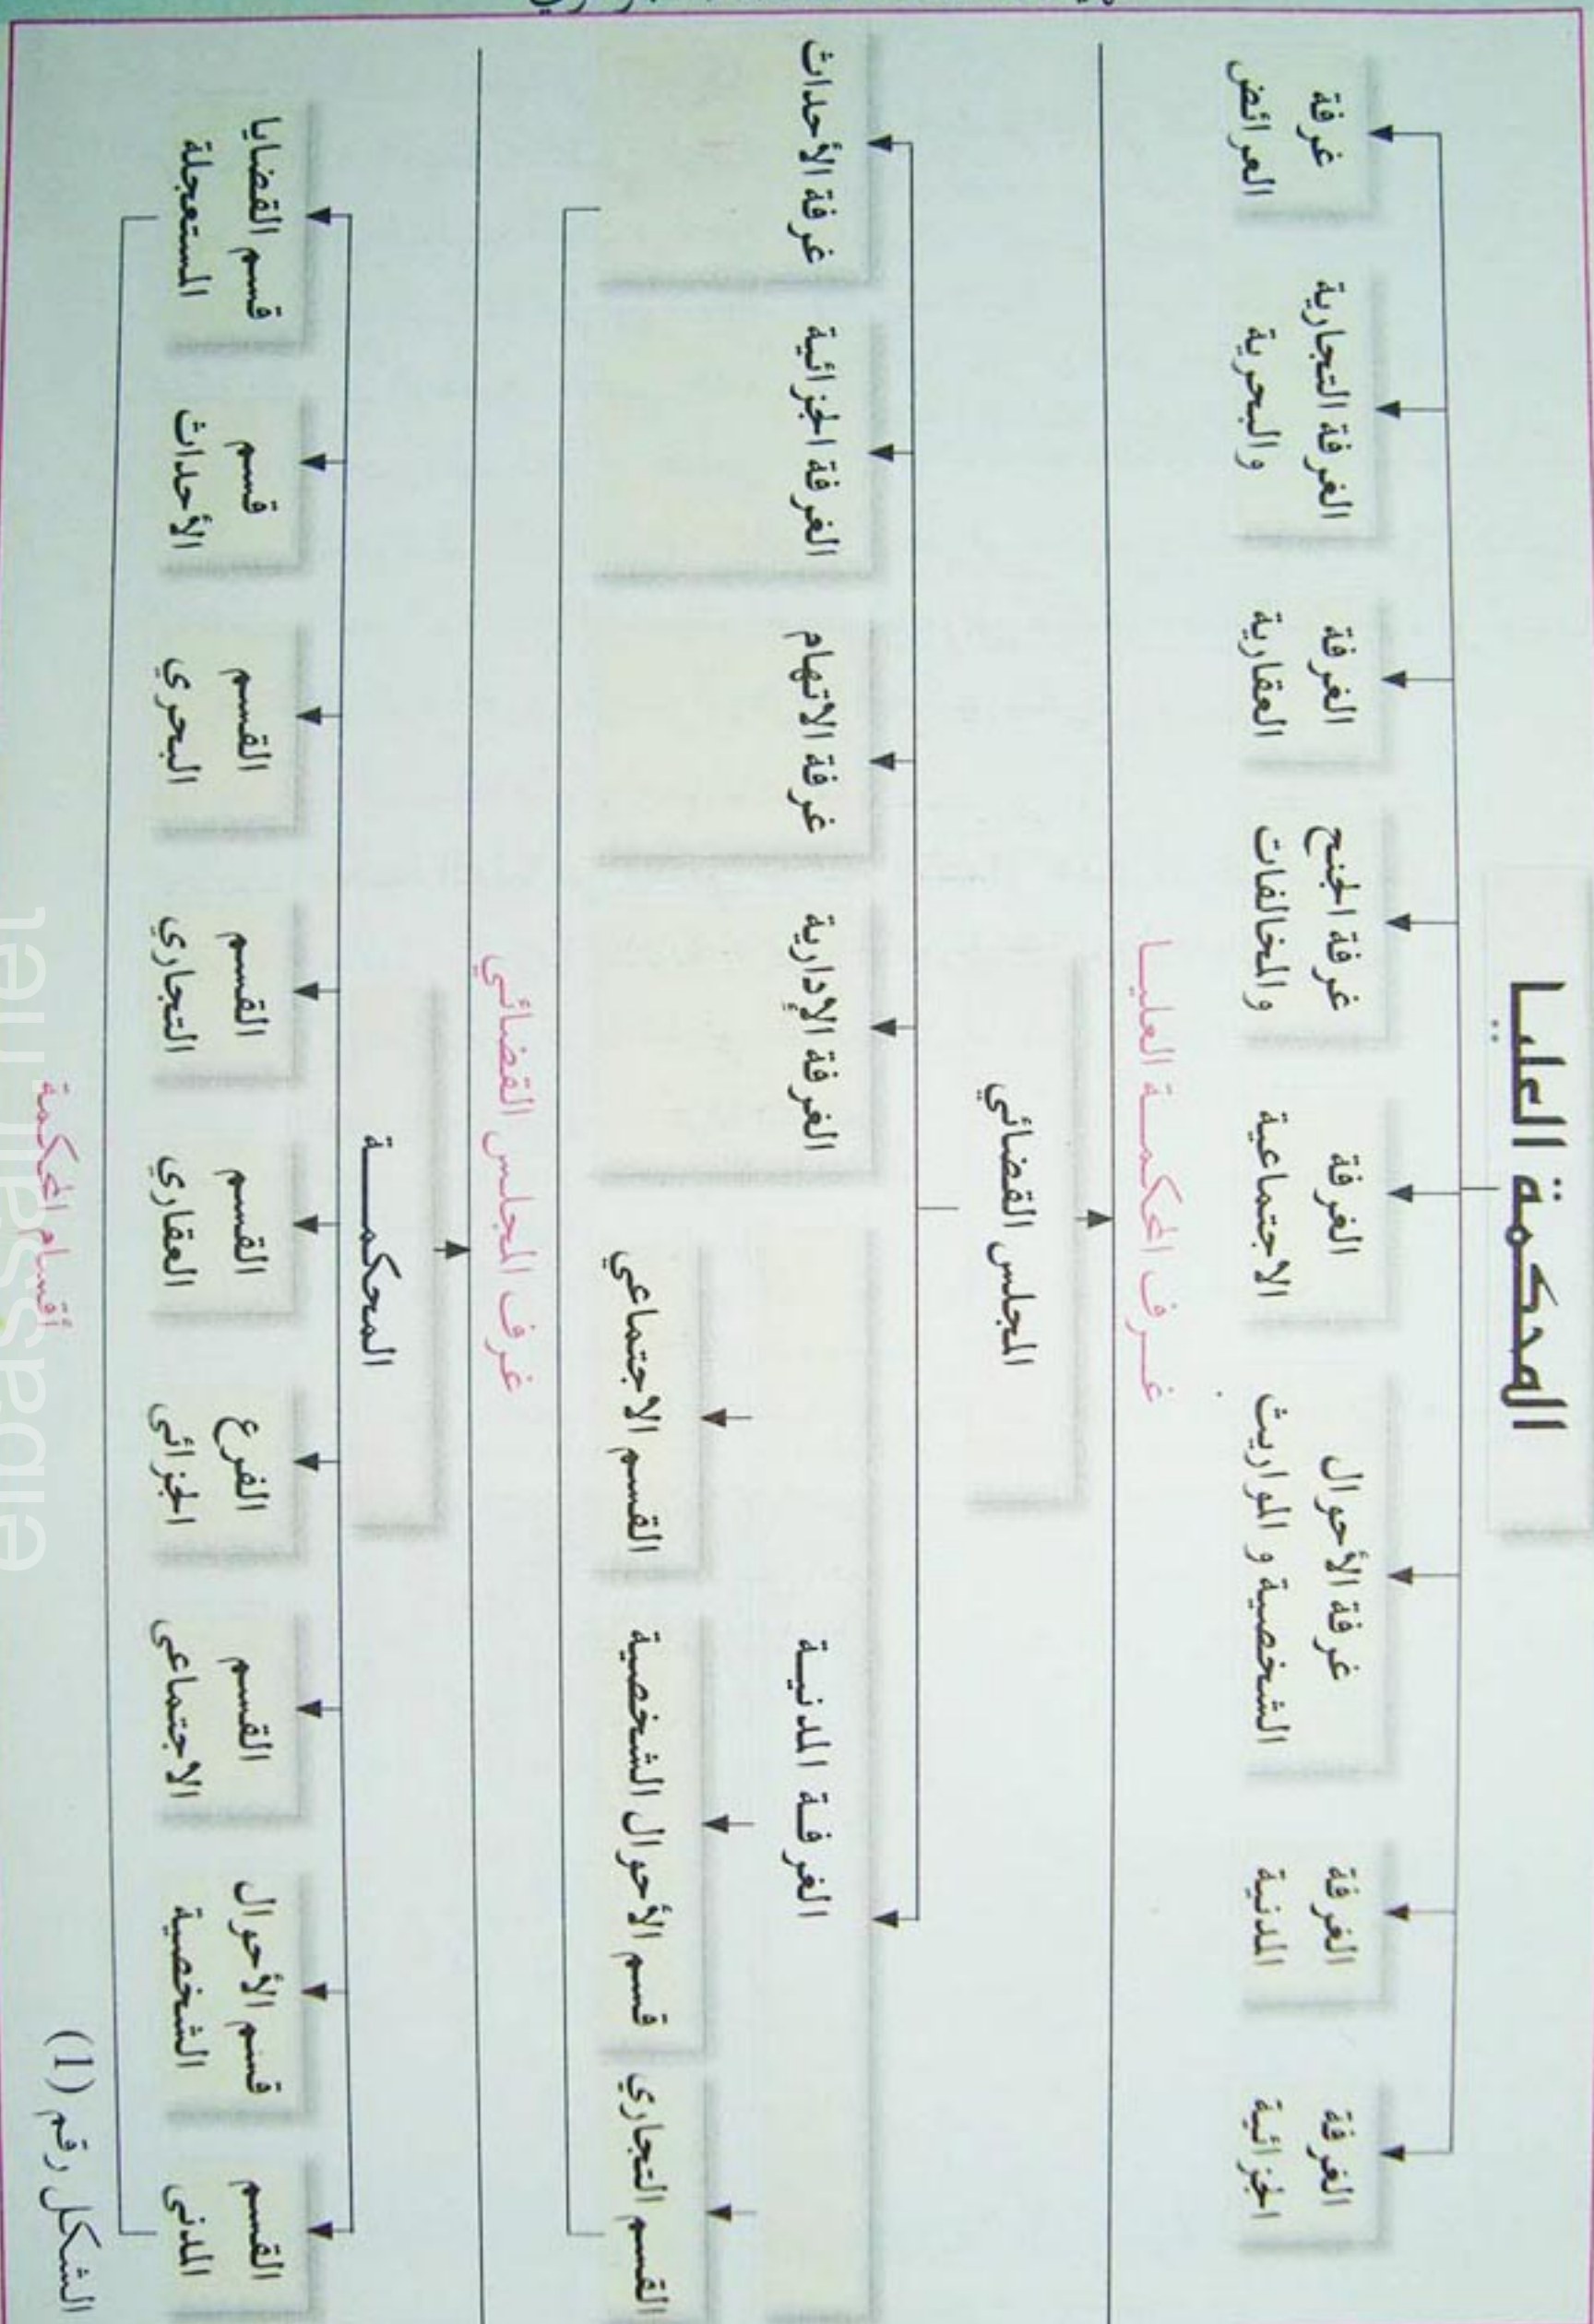 المحكمة العليا
الغرفة
الجزائية
الغرفة
المدنية
غرفة الأحوال
الشخصية و المواريث
الغرفة
الاجتماعية
غرفة الجنح
والمخالفات
الغرفة
العقارية
الغرفة التجارية
والبحرية
غرفة
العرائض
غرف المحكمة العليا
المجلس القضائي
الغرفة المدنية
القسم التجاري
قسم الأحوال الشخصية
القسم الاجتماعي
الغرفة الإدارية
غرفة الاتهام
الغرفة الجزائية
غرفة الأحداث
غرف المجلس القضائي
المحكمة
القسم
المدني
قسم الأحوال
الشخصية
القسم
الاجتماعي
الفرع
الجزائي
القسم
العقاري
القسم
التجاري
القسم
البحري
قسم
الأحداث
قسم القضايا
المستعجلة
أقسام المحكمة
الشكل رقم (1)
elbassair.net